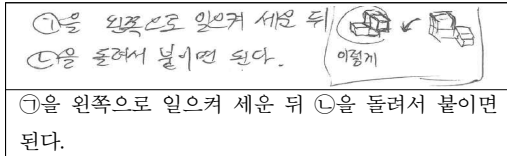 ㉠을 왼쪽으로 일으켜 세운 뒤
㉡을 돌려서 붙이면 된다.
이렇게
㉠을 왼쪽으로 일으켜 세운 뒤 ㉡을 돌려서 붙이면
된다.